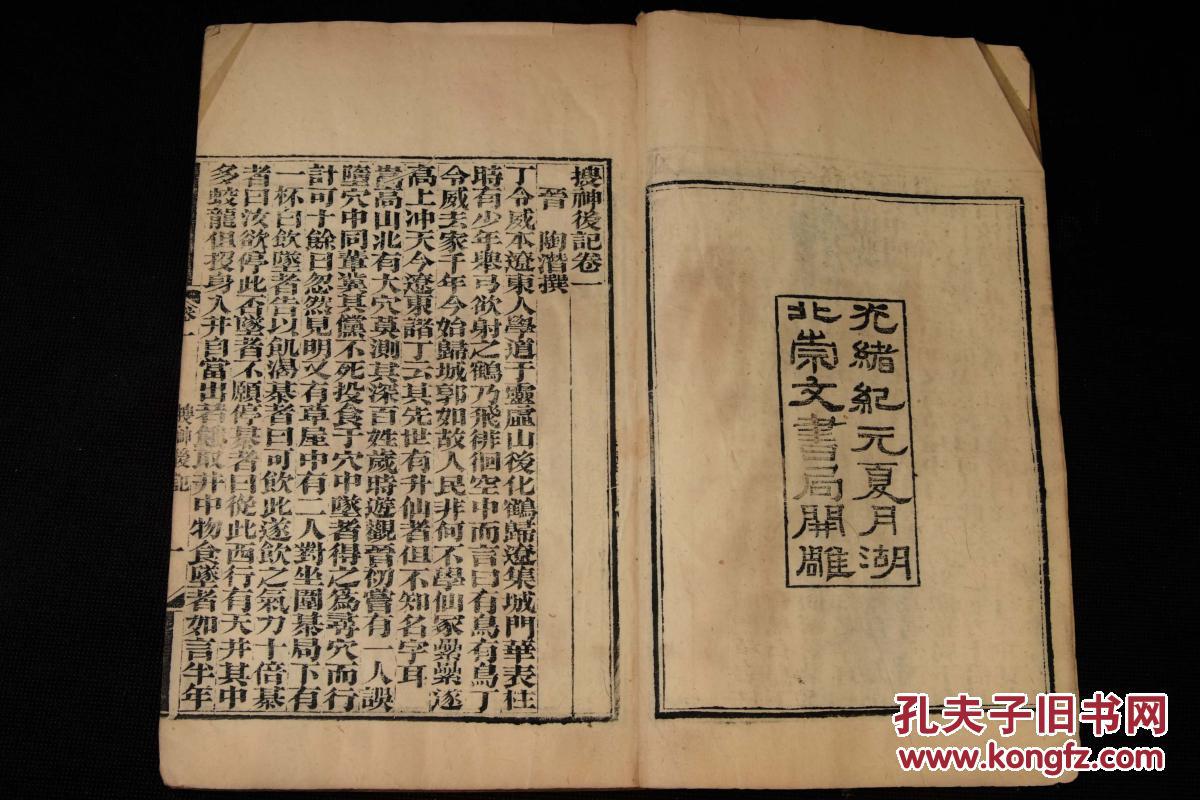 光緒紀元夏月湖
北崇文書局開雕
搜神後記卷一
晉 陶潛撰
丁令威本遼東人學道于靈虛山後化鶴歸遼集城門華表柱
時有少年舉弓欲射之鶴乃飛徘徊空中而言曰有鳥有鳥丁
令威去家千年今始歸城郭如故人民非何不學仙冢纍纍遂
高上冲天今遼東諸丁云其先世有升仙者但不知名字耳
嵩高山北有大穴莫測其深百姓歲時遊觀晉初嘗有一人誤
墮穴中同輩冀其儻不死投食于穴中墜者得之為尋穴而行
計可十餘日忽然見明又有草屋中有二人對坐圍棊局下有
一杯白飲墜者告以飢渴棊者曰可飲此遂飲之氣力十倍棊
者曰汝欲停此否墜者不願停棊者曰從此西行有天井其中
多蛟龍但投身入井自當出若餓取井中物食墜者如言半年
卷一
搜神後記
一
孔夫子旧书网
www.kongfz.com